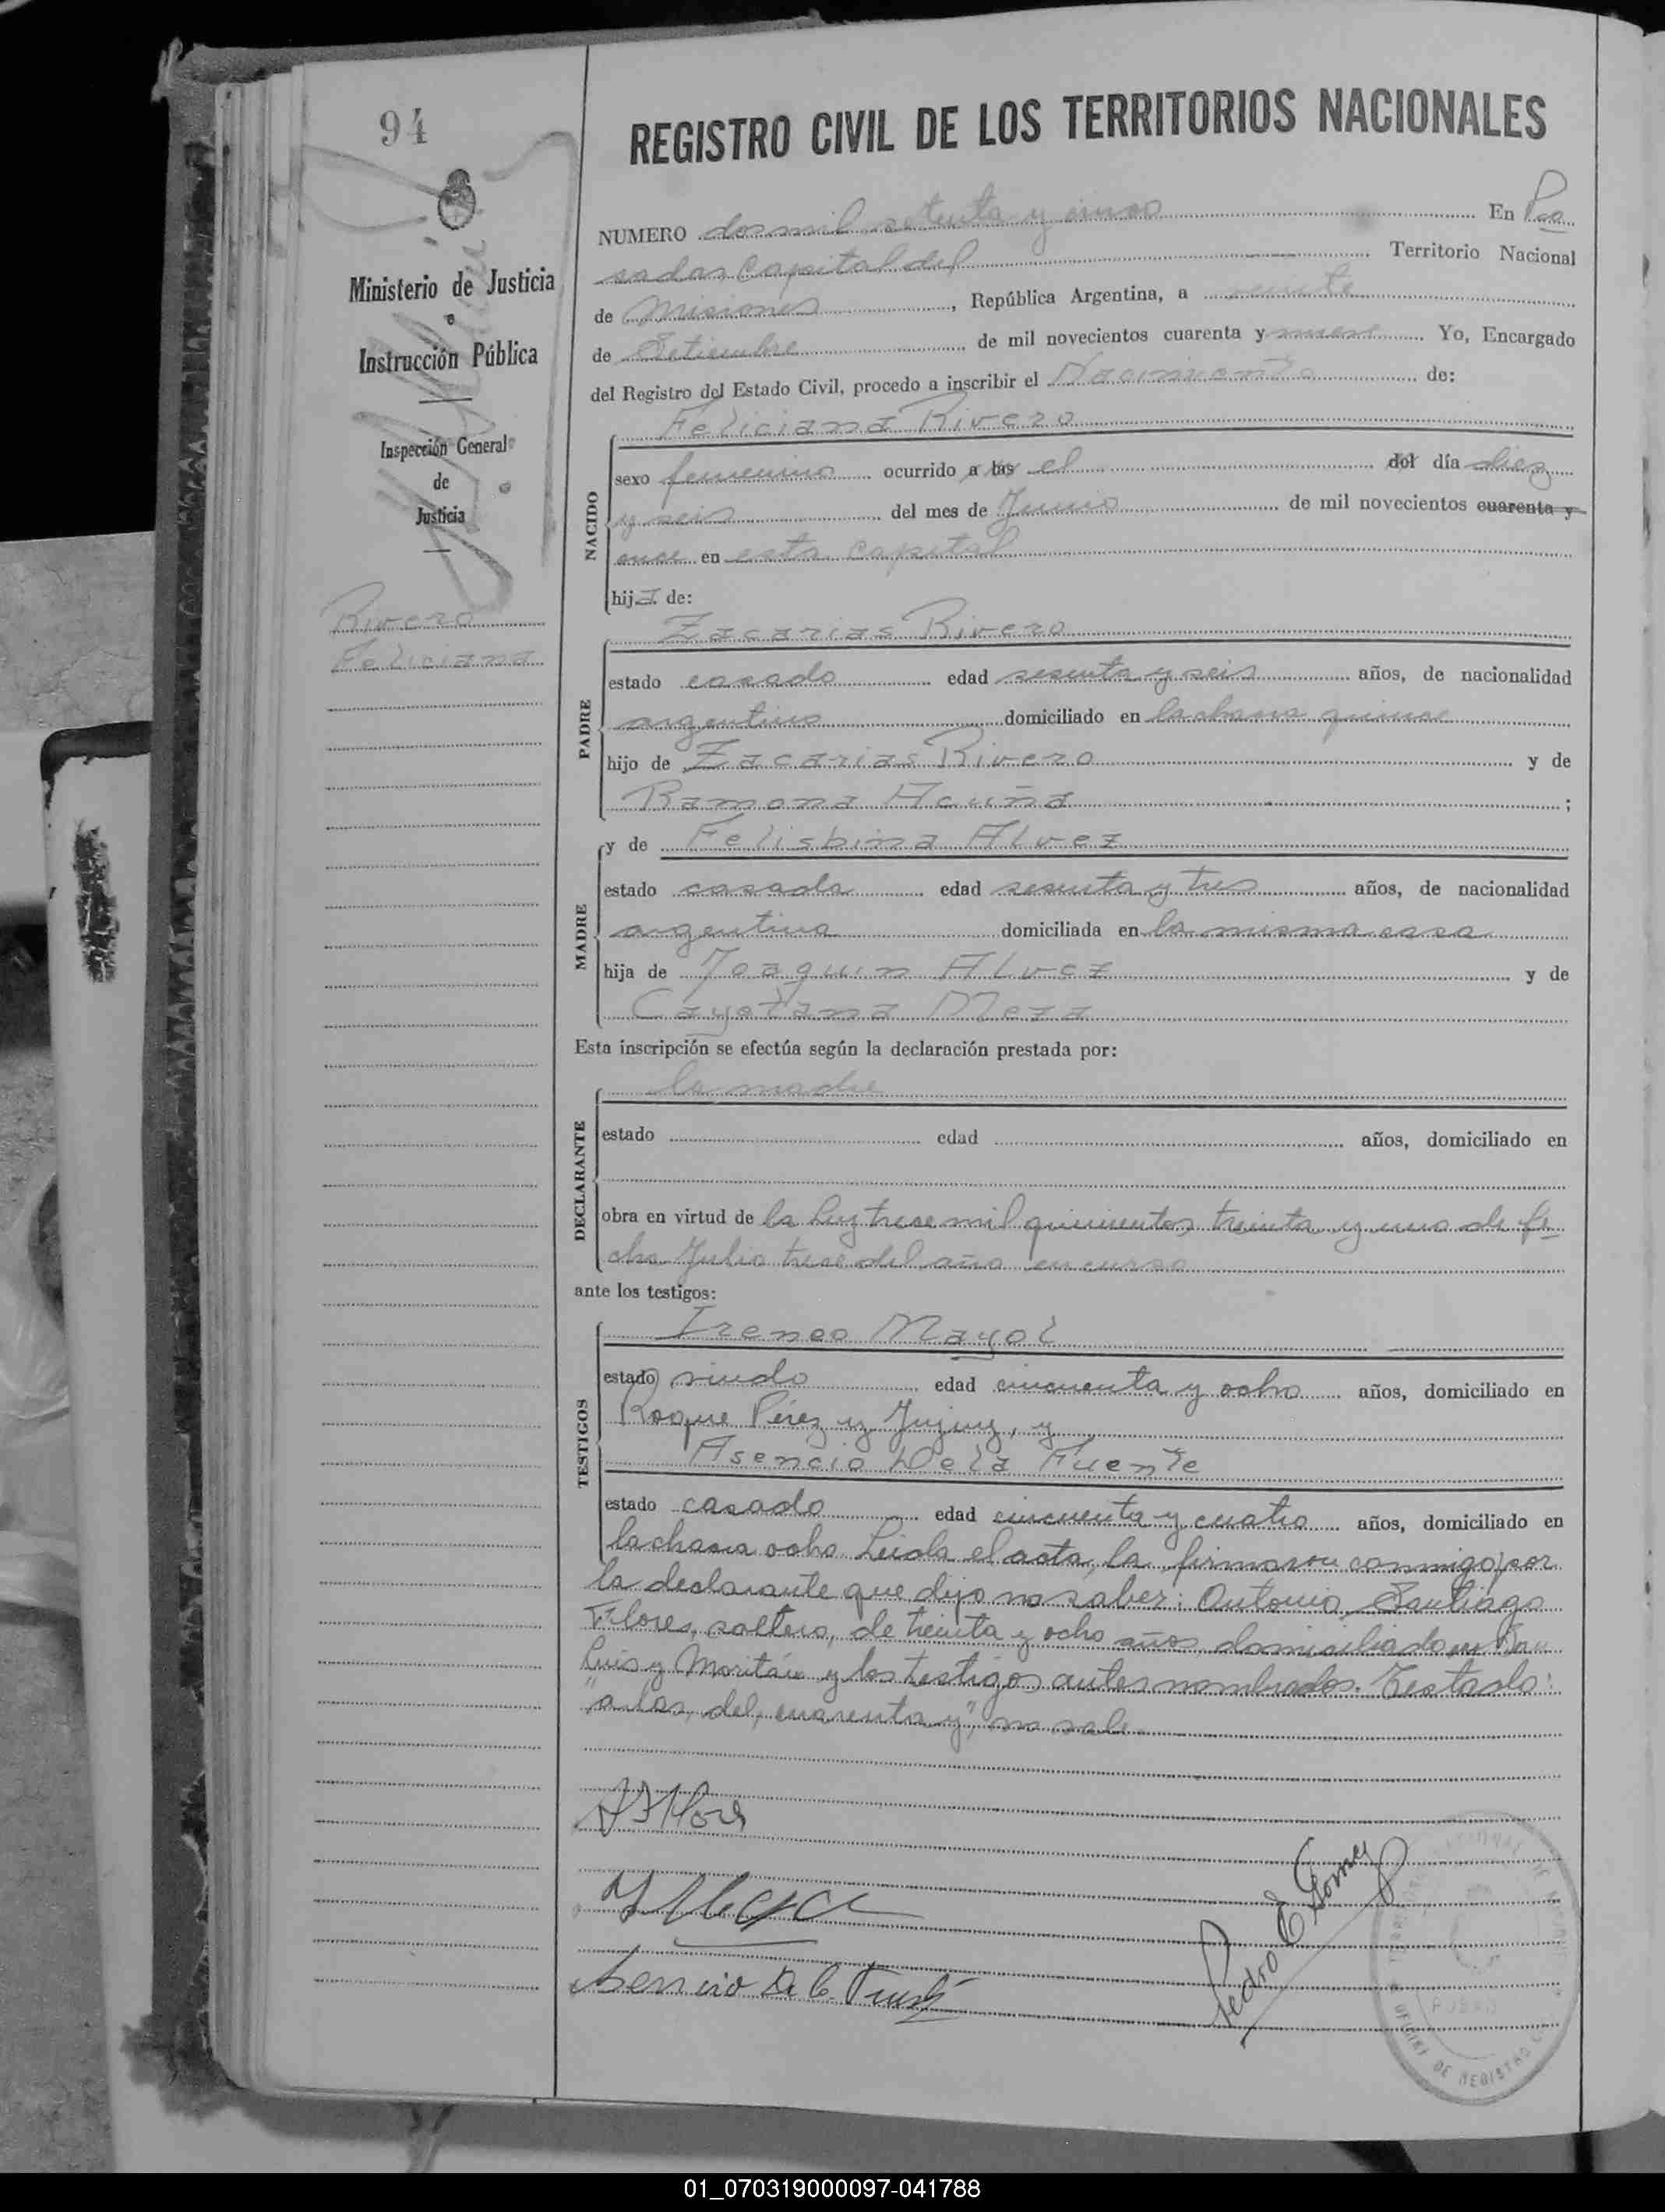 94
REGISTRO CIVIL DE LOS TERRITORIOS NACIONALES
Ministerio de Justicia
e
Instrucción Pública
Inspección General
de
Justicia
Rivero
Feliciana
NUMERO dos mil setenta y cinco En Po
sadas Capital del Territorio Nacional
de Misiones, República Argentina, a veinte
de Setiembre de mil novecientos cuarenta y nueve Yo, Encargado
del Registro del Estado Civil, procedo a inscribir el Nacimiento de:
Feliciana Rivero
NACIDO
sexo femenino ocurrido a las el del día diez
y seis del mes de Junio de mil novecientos cuarenta y
once en esta capital
hija de:
Zacarias Rivero
PADRE
estado casado edad sesenta y seis años, de nacionalidad
argentino domiciliado en la chacra quince
hijo de Zacarias Rivero y de
Ramona Acuña;
y de Felisbina Alvez
MADRE
estado casada edad sesenta y tres años, de nacionalidad
argentina domiciliada en la misma casa
hija de Joaquin Alvez y de
Cayetana Meza
Esta inscripción se efectúa según la declaración prestada por:
la madre
DECLARANTE
estado edad años, domiciliado en
obra en virtud de la ley trece mil quinientos treinta y uno de fe
cha Julio trece del año en curso
ante los testigos:
Ireneo Mayol
TESTIGOS
estado viudo edad cincuenta y ocho años, domiciliado en
Roque Pérez y Jujuy, y
Asencio De la Fuente
estado casado edad cincuenta y cuatro años, domiciliado en
la chacra ocho. Leida el acta, la firmaron conmigo, por
la declarante que dijo no saber: Antonio Santiago
Flores, soltero, de treinta y ocho años, domiciliado en San
Luis y Moritán y los testigos antes nombrados. Testado:
"a las, del, cuarenta y", no vale.
Pedro E Gomez
OFICINA DE REGISTRO
01_070319000097-041788